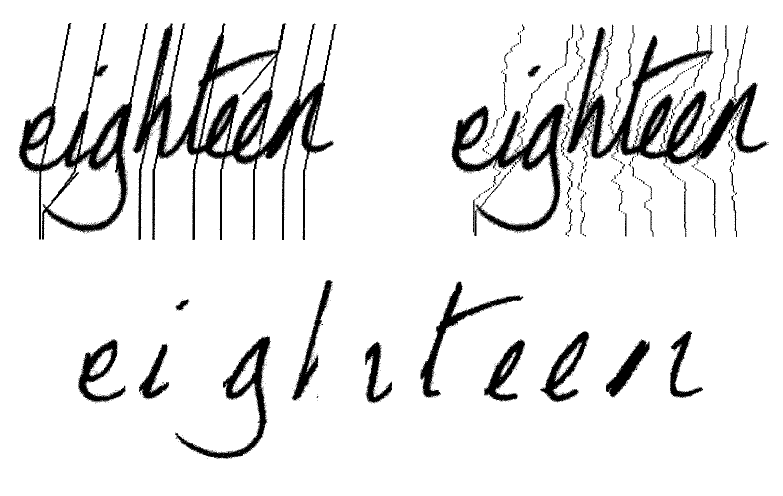 eighteen eighteen
eighteen